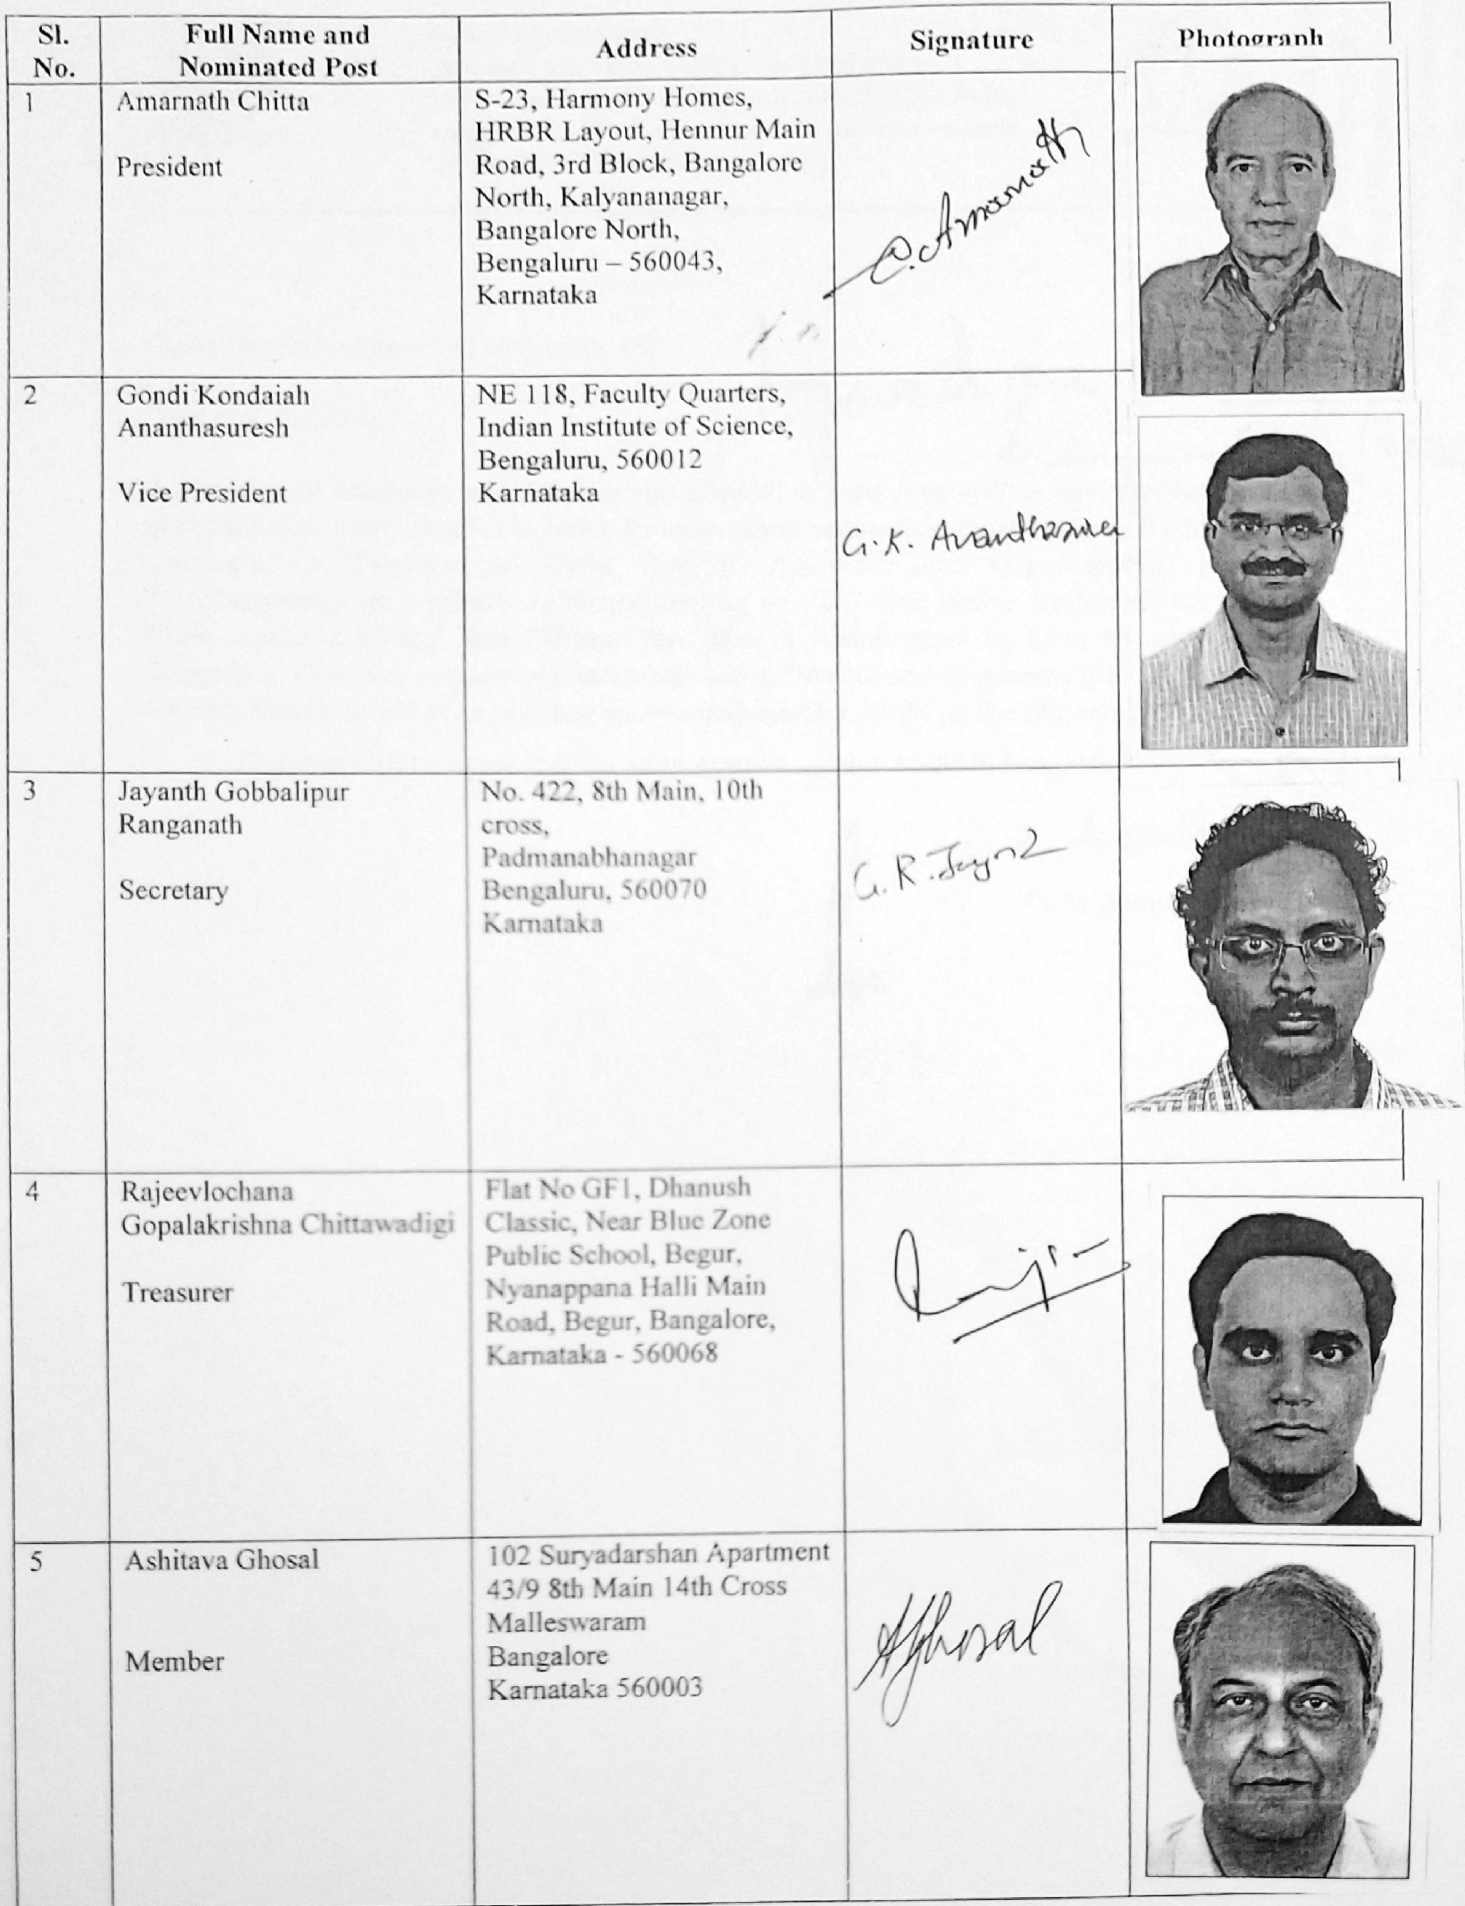 Sl. No.
Full Name and Nominated Post
Address
Signature
Photograph
1
Amarnath Chitta
President
S-23, Harmony Homes,
HRBR Layout, Hennur Main
Road, 3rd Block, Bangalore
North, Kalyananagar,
Bangalore North,
Bengaluru – 560043,
Karnataka
C. Amarnath
2
Gondi Kondaiah
Ananthasuresh
Vice President
NE 118, Faculty Quarters,
Indian Institute of Science,
Bengaluru, 560012
Karnataka
G.K. Ananthasuresh
3
Jayanth Gobbalipur
Ranganath
Secretary
No. 422, 8th Main, 10th
cross,
Padmanabhanagar
Bengaluru, 560070
Karnataka
G. R.
4
Rajeevlochana
Gopalakrishna Chittawadigi
Treasurer
Flat No GF1, Dhanush
Classic, Near Blue Zone
Public School, Begur,
Nyanappana Halli Main
Road, Begur, Bangalore,
Karnataka - 560068
5
Ashitava Ghosal
Member
102 Suryadarshan Apartment
43/9 8th Main 14th Cross
Malleswaram
Bangalore
Karnataka 560003
AGhosal